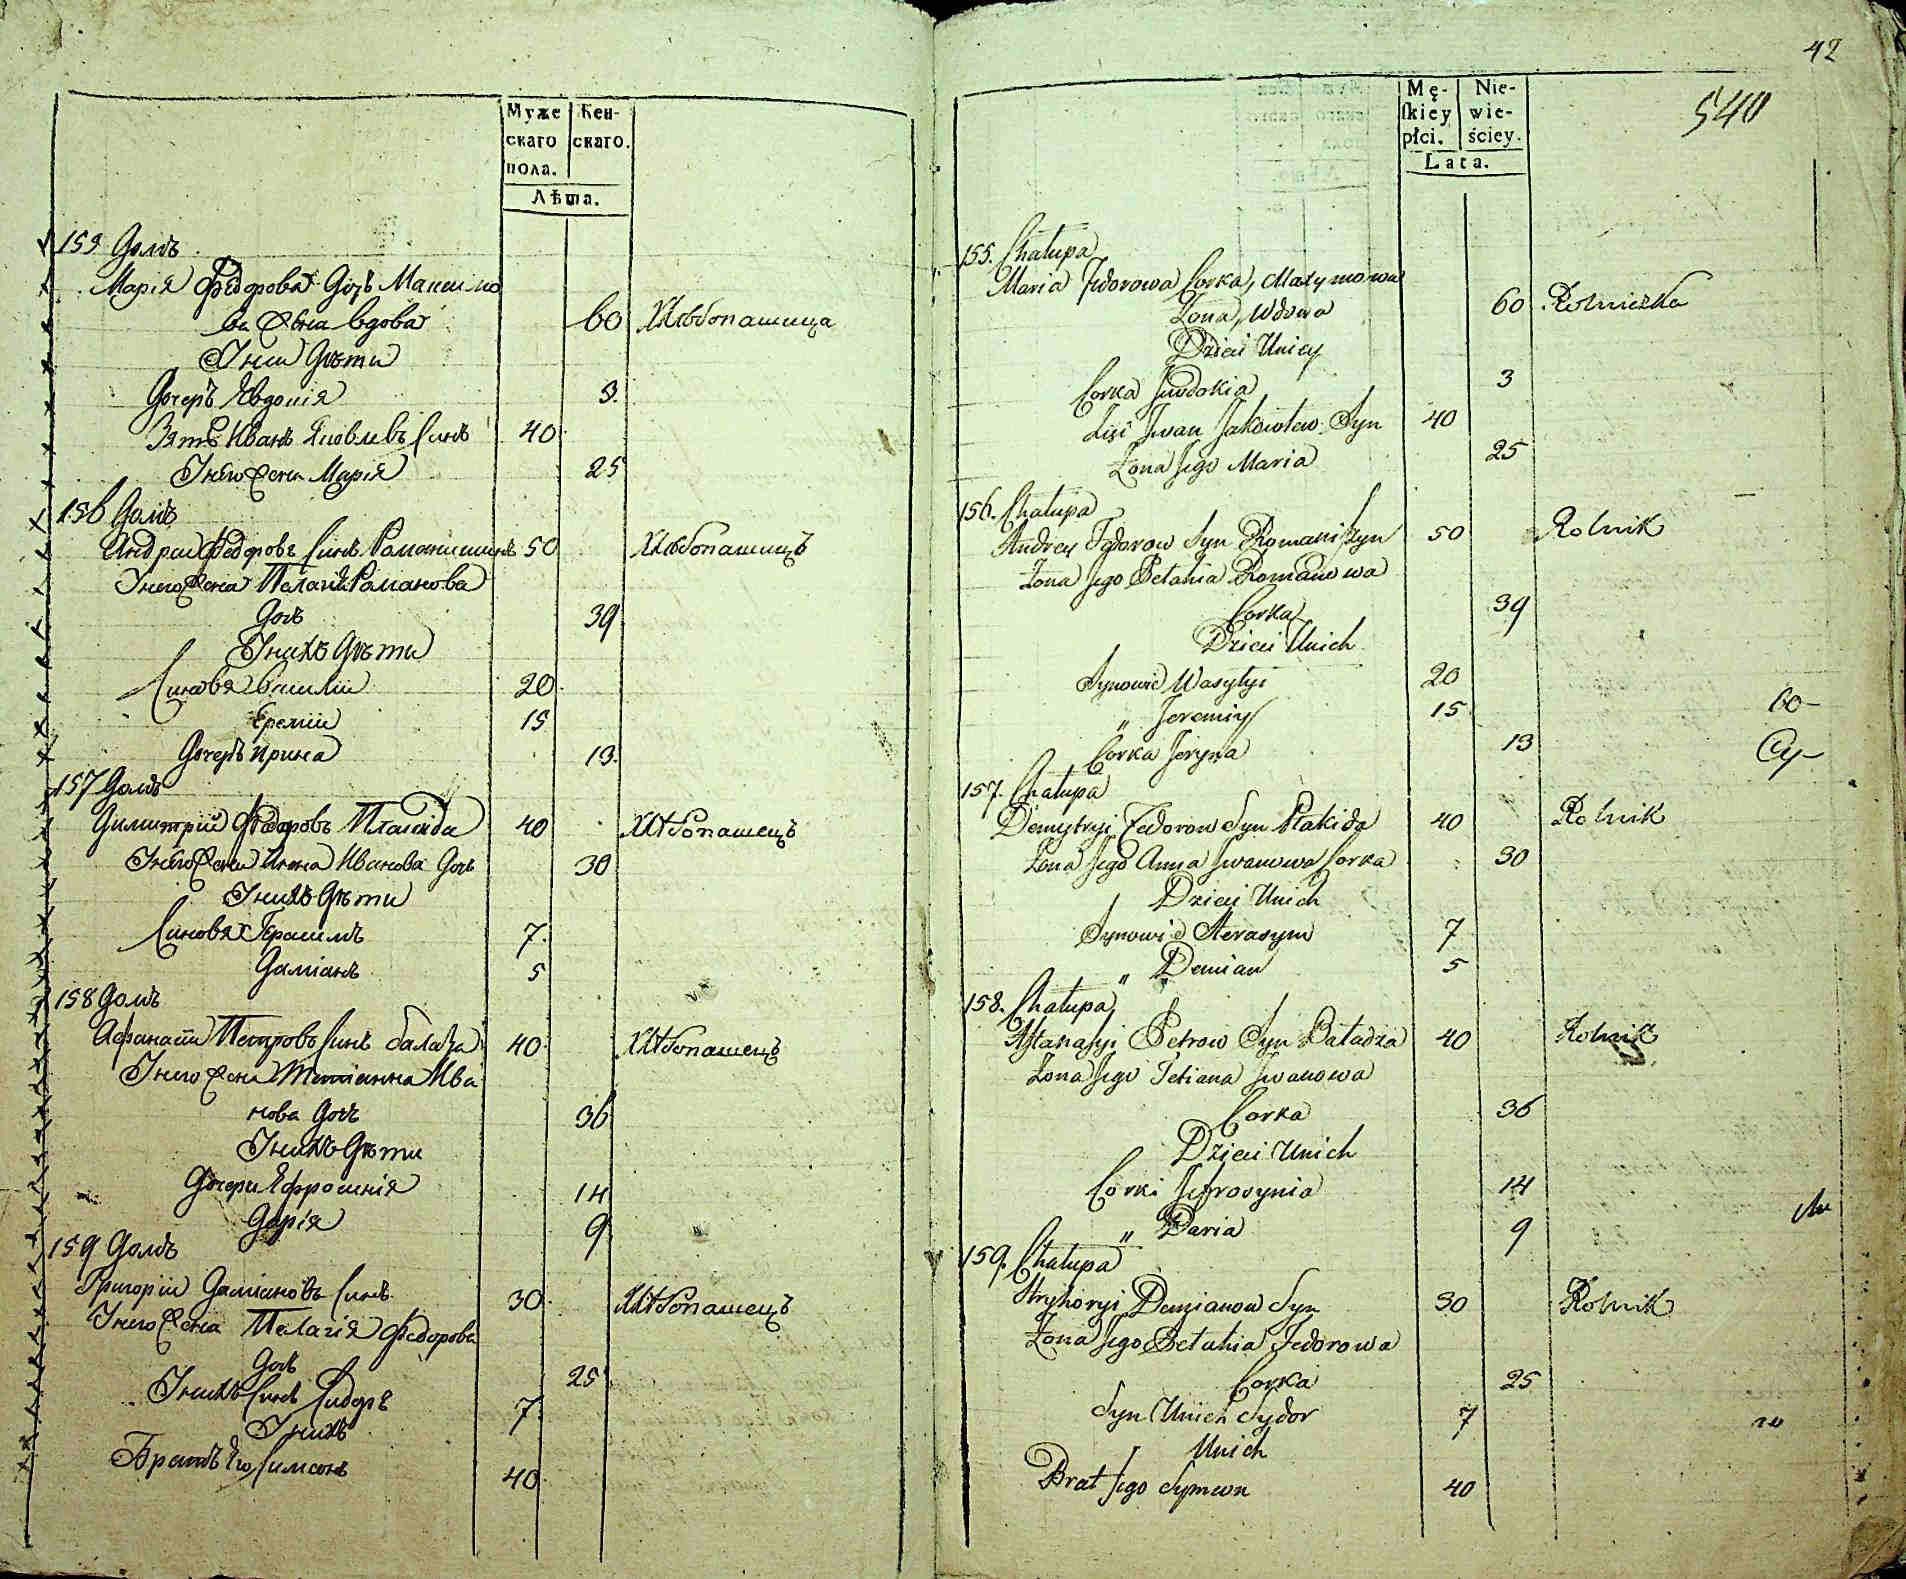 Муже
скаго
пола.
Жен-
скаго.
Лѣта.
155 Домъ
Марія Федорова Дочъ Максимо
ва Жена вдова 60 Хлѣбопашица
Унеи Дѣти
Дочеръ Явдокія 3.
Зять Иванъ Яковлевъ Синъ 40
Унего Жена Марія 25
156 Домъ
Андрей Федоровъ Синъ Романишинъ 50 Хлѣбопашецъ
Унего Жена Пелагія Романова
Дочъ 39
Унихъ Дѣти
Синовя Василій 20
Еремій 15
Дочеръ Ирина 13.
157 Домъ
Димитрій Федоровъ Плакида 40 Хлѣбопашецъ
Унего Жена Анна Иванова Дочъ 30
Унихъ Дѣти
Синовя Герасимъ 7.
Даміанъ 5
158 Домъ
Афанасій Петровъ Синъ Баладжа 40 Хлѣбопашецъ
Унего Жена Татіанна Ива
нова Дочъ 36
Унихъ Дѣти
Дочери Яфросинія 14
Дарія 9
159 Домъ
Григорій Даміановъ Синъ 30 Хлѣбопашецъ
Унего Жена Пелагія Федорова
Дочъ 25
Унихъ Синъ Сидоръ 7.
Унихъ
Братъ Его Симеонъ 40
42
540
Mę-
skiey
płci.
Nie-
wie-
ściey.
Lata.
155. Chałupa
Maria Fedorowa Corka, Maxymowa
Żona, Wdowa 60 Rolniczka
Dzieci Uniey
Corka Jewdokia 3
Zięć Jwan Jakowlew Syn 40
Żona Jego Maria 25
156. Chałupa
Andrey Fedorow Syn Romaniszyn 50 Rolnik
Żona Jego Pelahia Romanowa
Corka 39
Dzieci Unich
Synowie Wasylyi 20
" Jeremiy 15
60-
Corka Jeryna 13
157. Chałupa
Demytryi Fedorow Syn Płakida 40 Rolnik
Żona Jego Anna Jwanowa Corka 30
Dzieci Unich
Synowie Herasym 7
" Demian 5
158. Chałupa
Aftanasyi Petrow Syn Baładża 40 Rolnik
Żona Jego Tetiana Jwanowa
Corka 36
Dzieci Unich
Corki Jefrosynia 14
" Daria 9
159. Chałupa
Hryhoryi Demianow Syn 30 Rolnik
Żona Jego Pelahia Fedorowa
Corka 25
Syn Unich Sydor 7
Unich
Brat Jego Symeon 40